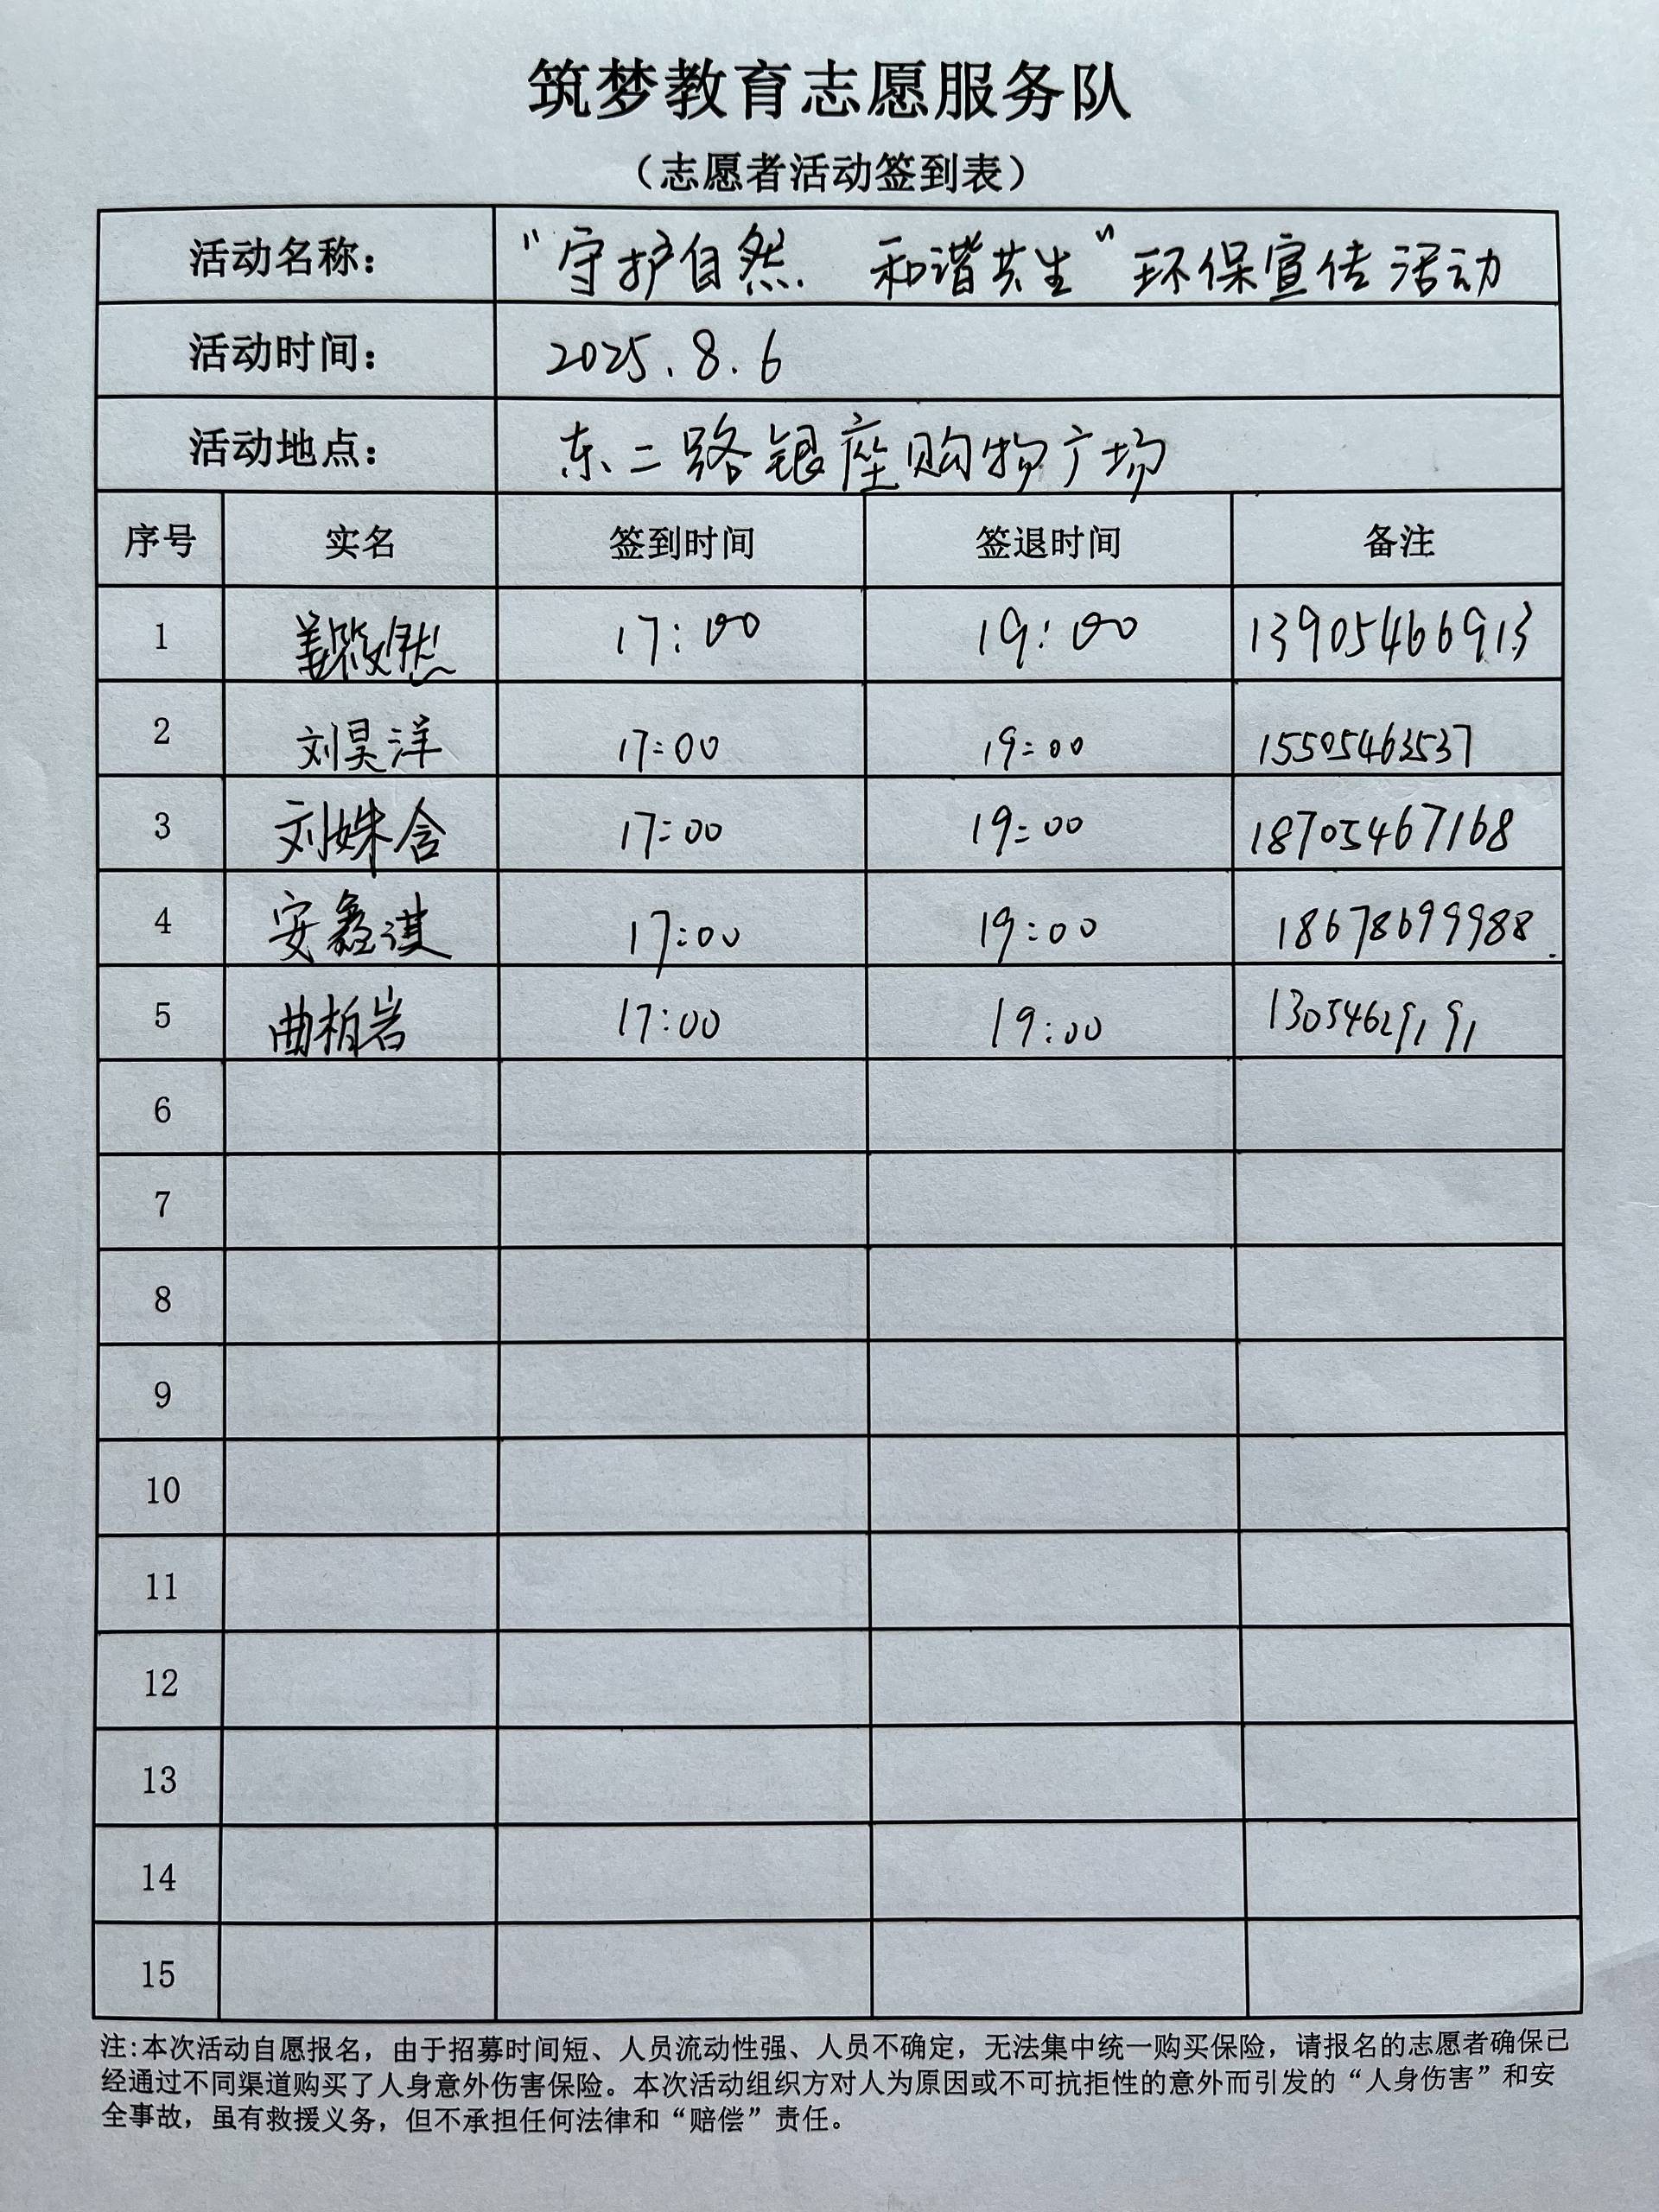 筑梦教育志愿服务队
（志愿者活动签到表）
活动名称： “守护自然 和谐共生”环保宣传活动
活动时间： 2025.8.6
活动地点： 东二路银座购物广场
序号 实名 签到时间 签退时间 备注
1 姜筱然 17:00 19:00 13905466913
2 刘昊洋 17:00 19:00 15505463537
3 刘姝含 17:00 19:00 18705467168
4 安鑫淇 17:00 19:00 18678699988
5 曲柏岩 17:00 19:00 13054629191
6
7
8
9
10
11
12
13
14
15
注:本次活动自愿报名，由于招募时间短、人员流动性强、人员不确定，无法集中统一购买保险，请报名的志愿者确保已
经通过不同渠道购买了人身意外伤害保险。本次活动组织方对人为原因或不可抗拒性的意外而引发的“人身伤害”和安
全事故，虽有救援义务，但不承担任何法律和“赔偿”责任。